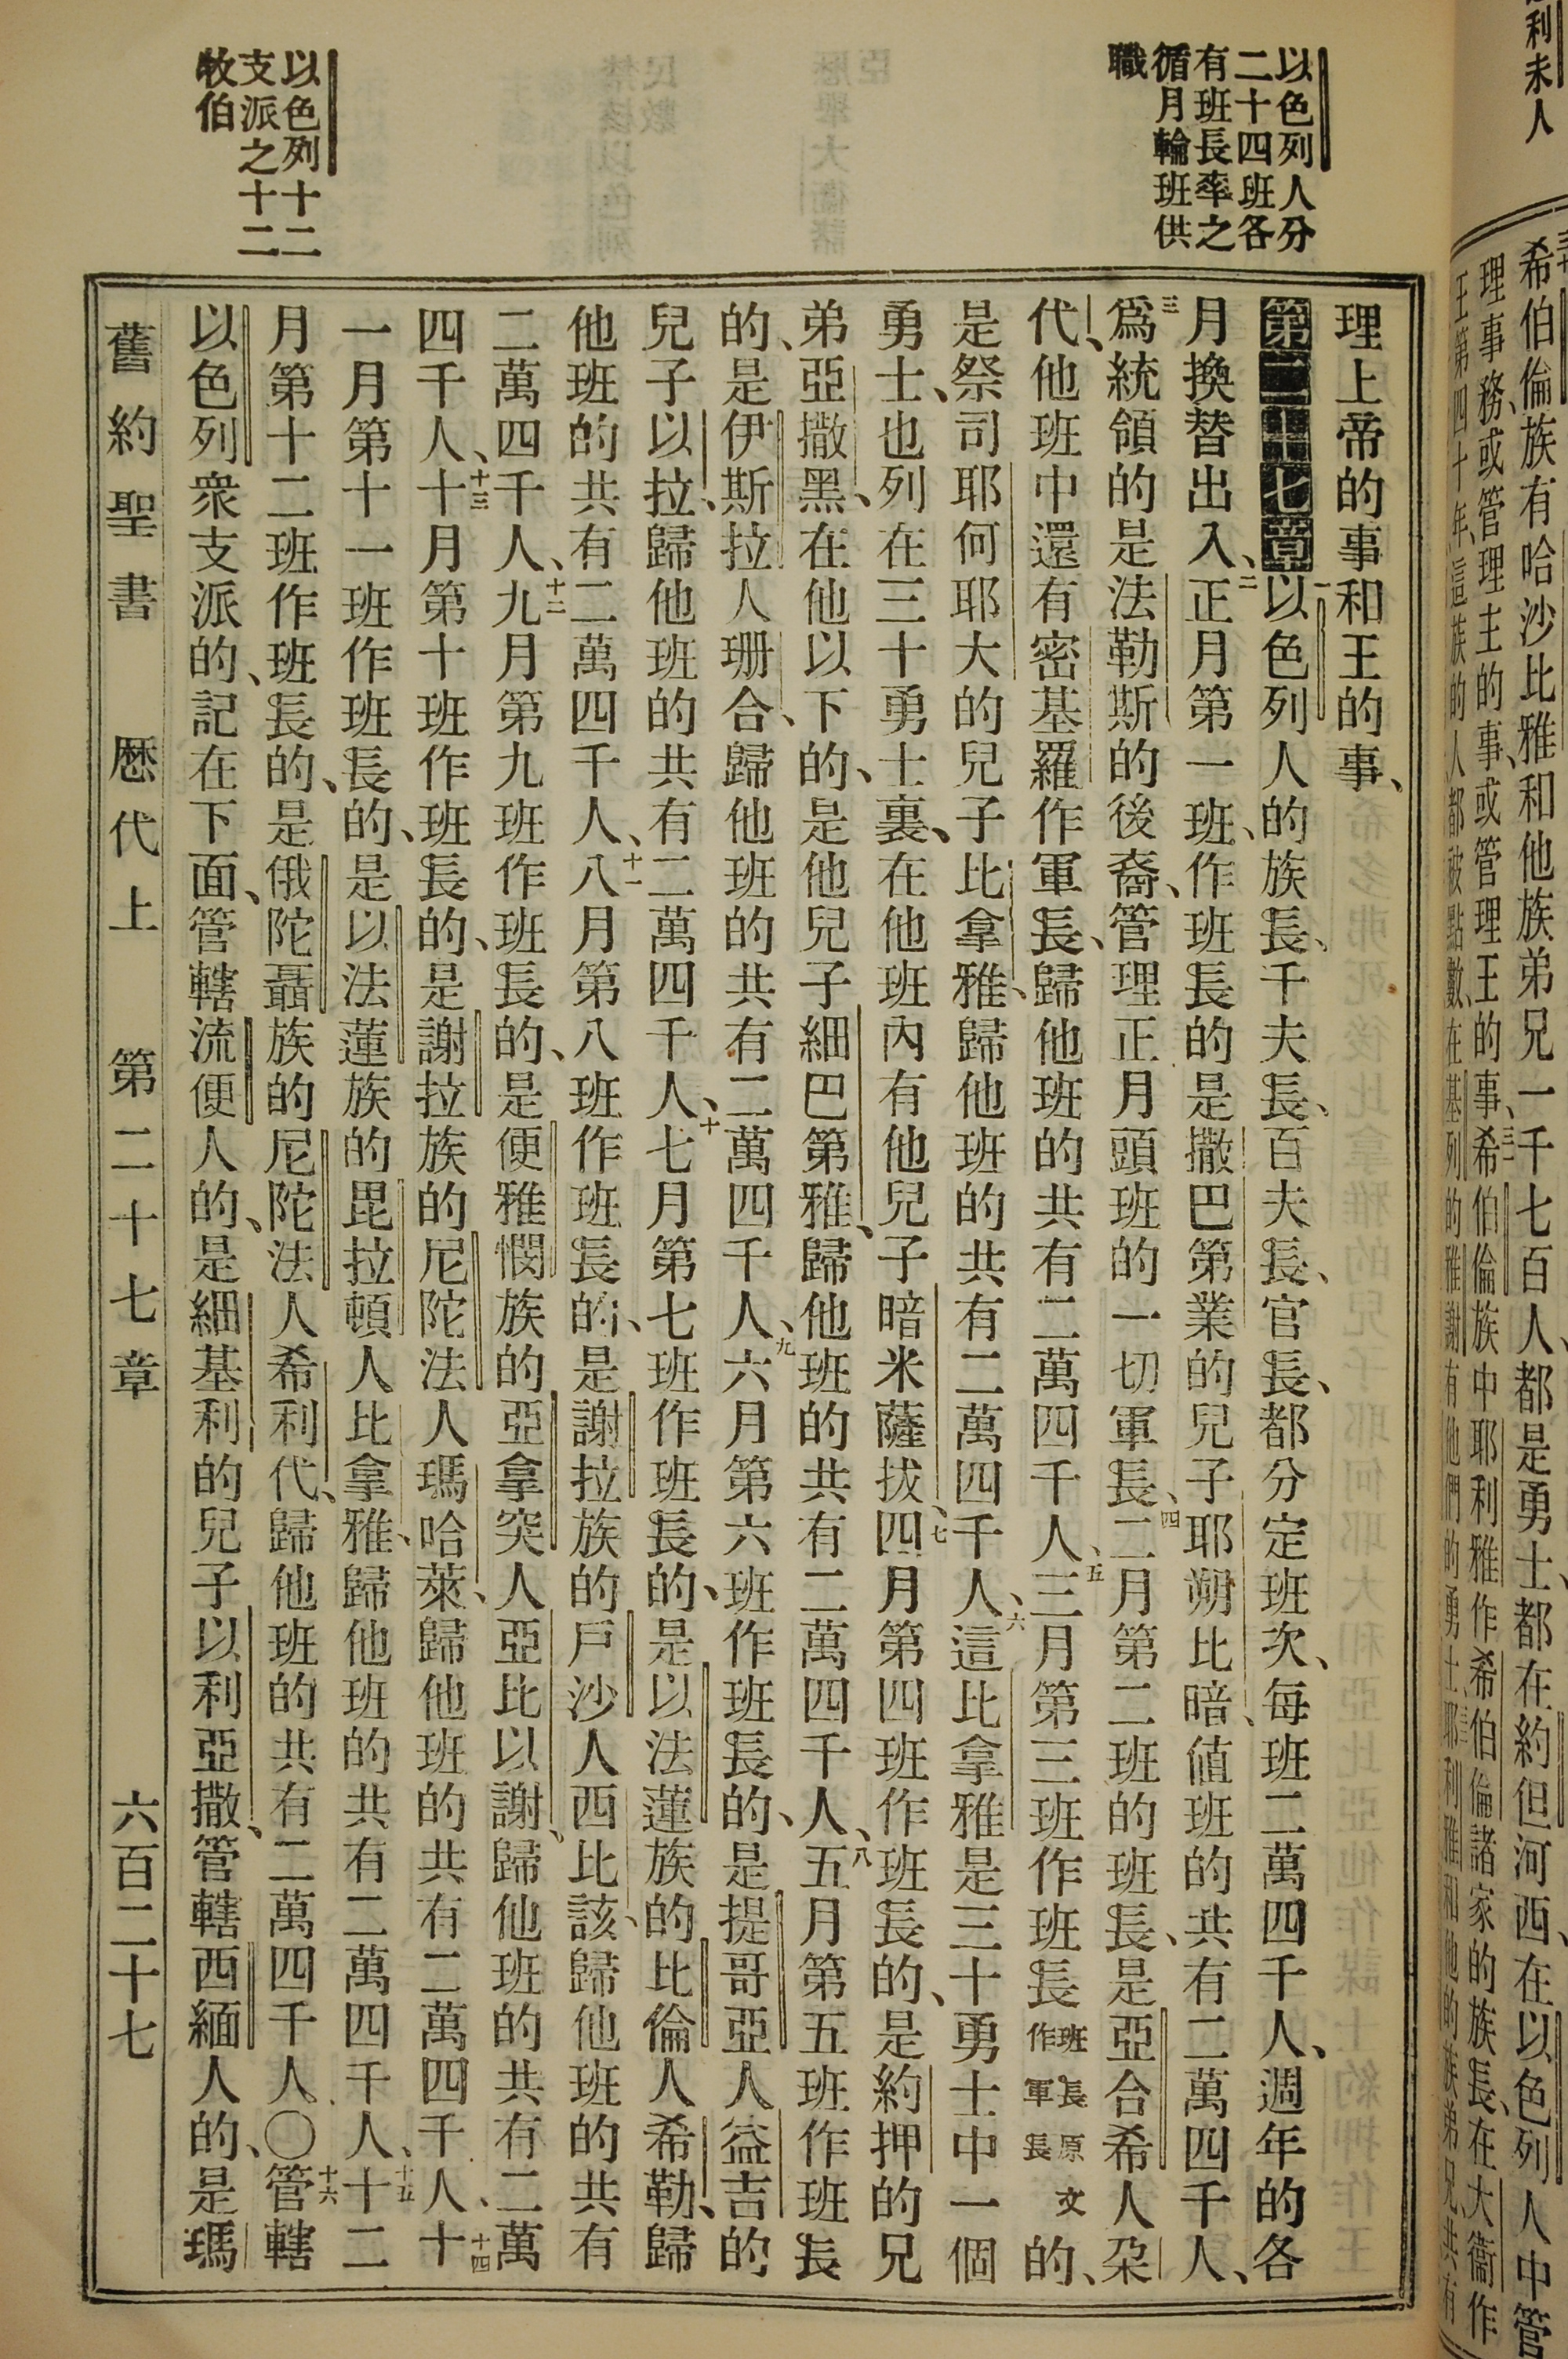 利未人
希伯倫族有哈沙比雅和他族弟兄一千七百人、都是勇士、都在約但河西、在以色列人中管
理事務、或管理主的事、或管理王的事、三一希伯倫族中耶利雅作希伯倫諸家的族長、在大衞作
王第四十年、這族的人都被點數、在基列的雅謝有他們的勇士、耶利雅和他的族弟兄、共有
以色列人分
二十四班各
有班長率之
循月輪班供
職
以色列十二
支派之十二
牧伯
理上帝的事和王的事、
第二十七章一以色列人的族長、千夫長、百夫長、官長、都分定班次、每班二萬四千人、週年的各
月換替出入、二正月第一班、作班長的是撒巴第業的兒子耶朔比暗、值班的共有二萬四千人、
三爲統領的是法勒斯的後裔、管理正月頭班的一切軍長、四二月第二班的班長、是亞合希人朶
代、他班中還有密基羅作軍長、歸他班的共有二萬四千人、五三月第三班作班長班長原文作軍長的、
是祭司耶何耶大的兒子比拿雅、歸他班的共有二萬四千人、六這比拿雅是三十勇士中一個
勇士、也列在三十勇士裏、在他班內有他兒子暗米薩拔、七四月第四班作班長的、是約押的兄
弟亞撒黑、在他以下的、是他兒子細巴第雅、歸他班的共有二萬四千人、八五月第五班作班長
的、是伊斯拉人珊合、歸他班的共有二萬四千人、九六月第六班作班長的、是提哥亞人益吉的
兒子以拉、歸他班的共有二萬四千人、十七月第七班作班長的、是以法蓮族的比倫人希勒、歸
他班的共有二萬四千人、十一八月第八班作班長的、是謝拉族的戶沙人西比該、歸他班的共有
二萬四千人、十二九月第九班作班長的、是便雅憫族的亞拿突人亞比以謝、歸他班的共有二萬
四千人、十三十月第十班作班長的、是謝拉族的尼陀法人瑪哈萊、歸他班的共有二萬四千人、十四十
一月第十一班作班長的、是以法蓮族的毘拉頓人比拿雅、歸他班的共有二萬四千人、十五十二
月第十二班作班長的、是俄陀聶族的尼陀法人希利代、歸他班的共有二萬四千人〇十六管轄
以色列衆支派的、記在下面、管轄流便人的、是細基利的兒子以利亞撒、管轄西緬人的、是瑪
舊約聖書 歷代上 第二十七章 六百二十七